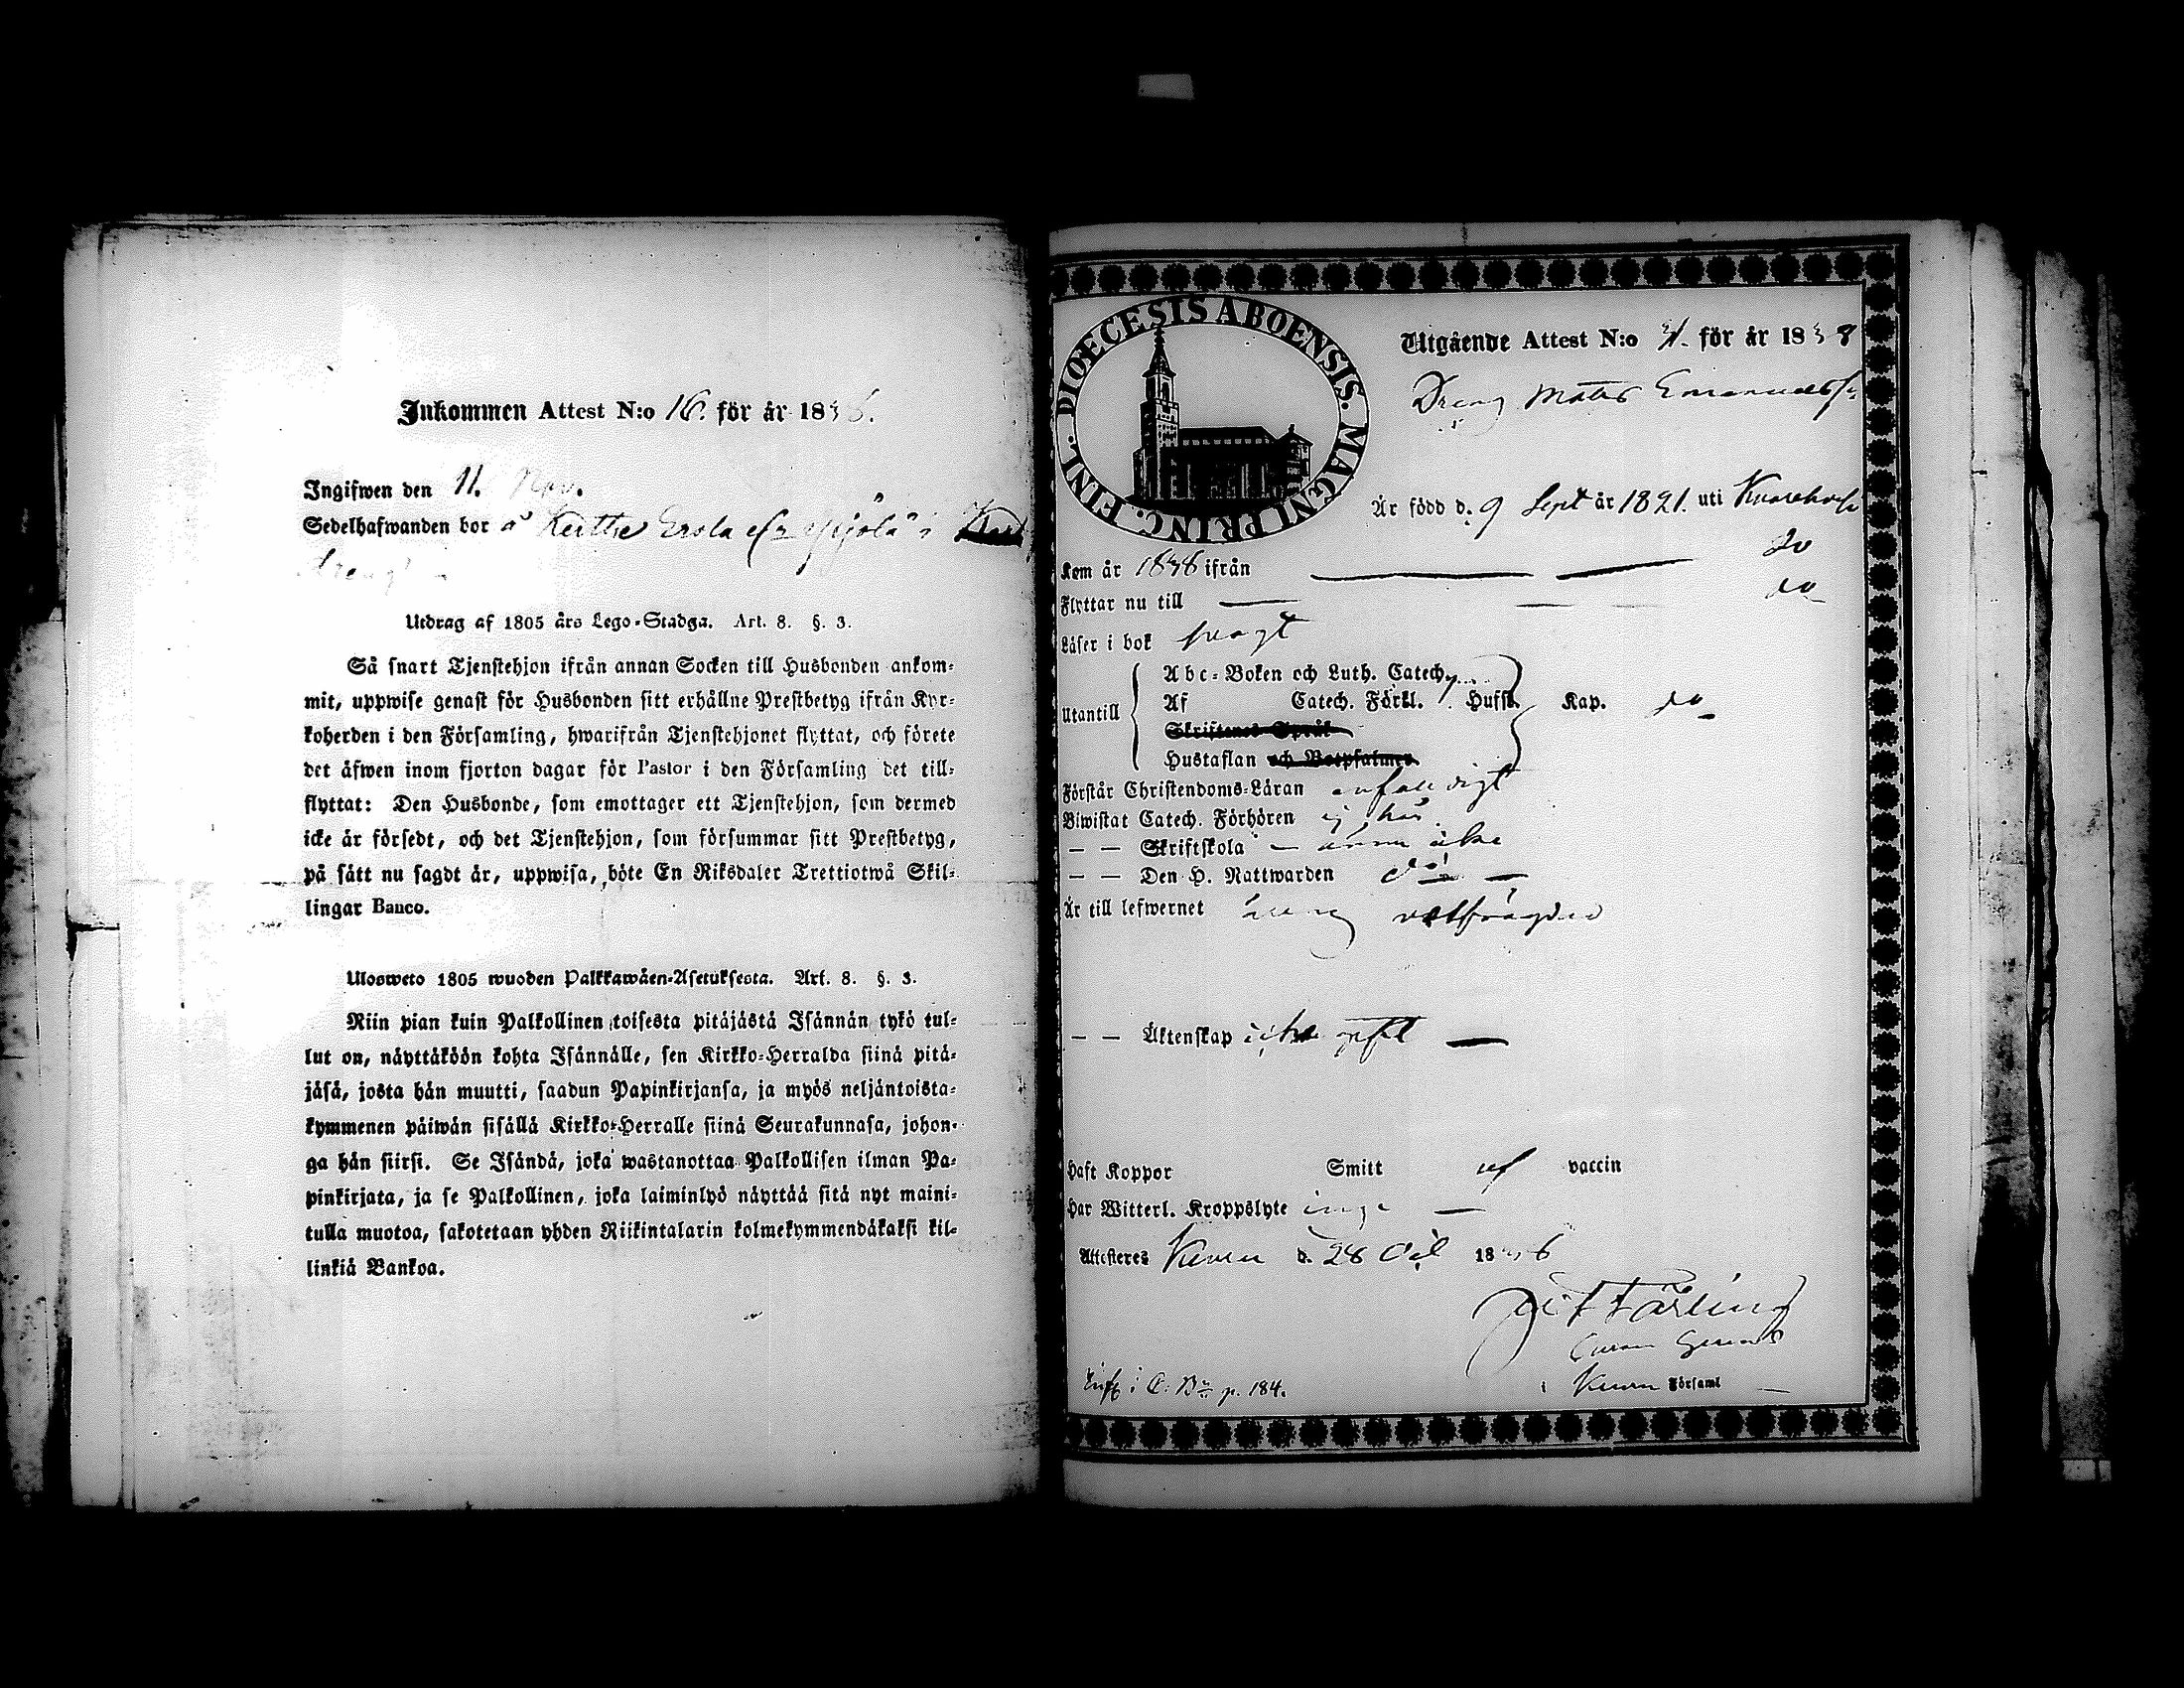 Inkommen Attest N:o 16. för år 18
Ingifwen den 11. Nov.
Sedelhafwanden bor å
Utdrag af 1805 års Lego-Stadga. Art. 8. §. 3.
Så snart Tjenstehjon ifrån annan Socken till Husbonden ankom-
mit, uppwise genast för Husbonden sitt erhållne Prestbetyg ifrån Kyr-
koherden i den Församling, hwarifrån Tjenstehjonet flyttat, och förete
det äfwen inom fjorton dagar för Pastor i den Församling det till-
flyttat: Den Husbonde, som emottager ett Tjenstehjon, som dermed
icke är försedt, och det Tjenstehjon, som försummar sitt Prestbetyg,
på sätt nu sagdt är, uppwisa, böte En Riksdaler Trettiotwå Skil-
lingar Banco.
Ulosweto 1805 wuoden Palkkawäen-Asetuksesta. Art. 8. §. 3.
Niin pian kuin Palkollinen toisesta pitäjästä Isännän tykö tul-
lut on, näyttäköön kohta Isännälle, sen Kirkko-Herralda siinä pitä-
jäsä, josta hän muutti, saadun Papinkirjansa, ja myös neljäntoista-
kymmenen päiwän sisällä Kirkko-Herralle siinä Seurakunnasa, johon-
ga hän siirsi. Se Isändä, joka wastanottaa Palkollisen ilman Pa-
pinkirjata, ja se Palkollinen, joka laiminlyö näyttää sitä nyt maini-
tulla muotoa, sakotetaan yhden Riikintalarin kolmekymmendäkaksi kil-
linkiä Bankoa.
DIOECESIS ABOENSIS. MAGNI PRINC. FINL.
Utgående Attest N:o för år 18
Dreng Matts Emanuelss
Är född d. 9 Sept år 1821. uti
Kom år ifrån do
Flyttar nu till do
Läser i bok svagt
Utantill
Abc-Boken och Luth. Catech.
Af Catech. Förkl. Hufst. Kap. do
Skriftenes Språk
Hustaflan och Botpsalmer
Förstår Christendoms-Läran enfaldigt
Biwistat Catech. Förhören ej här
— — Skriftskola — ännu icke
— — Den H. Nattwarden do —
Är till lefwernet wälfrägdad
— — Äktenskap icke gift —
Haft Koppor Smitt af vaccin
Har Witterl. Kroppslyte inga —
Attesteres d. 28 Oct 18
i Församl
p. 184.